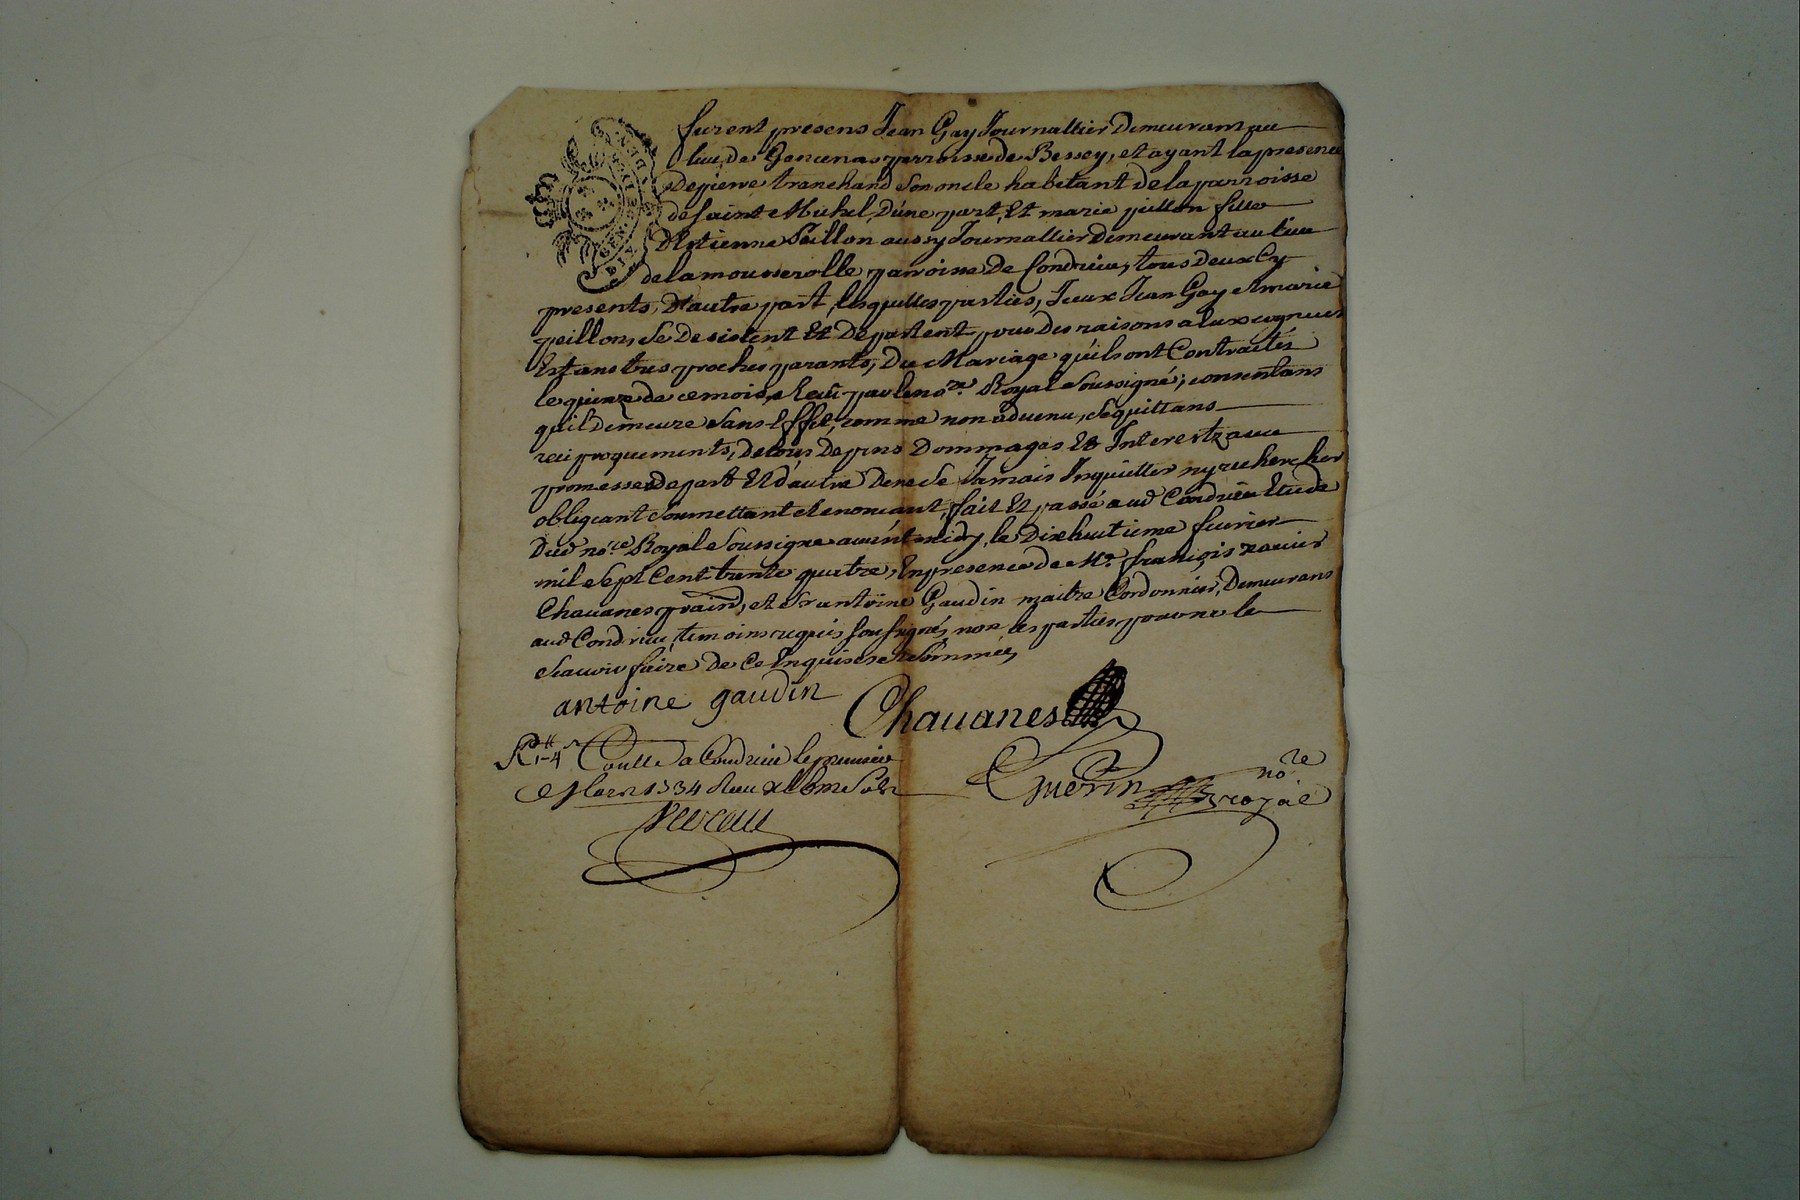 furent presens Jean Gay Journallier Demeurant au
lieu de Goncenas parroisse de Bessey, et ayant la presence
De pierre tranchand son oncle habitant de la parroisse
de saint Michel, D'une part, Et marie peillon fille
D'Estienne Peillon aussy Journallier Demeurant au lieu
de la mousserolle parroisse De Condrieu, tous deux Cy
presents, D'autre part, lesquelles parties, Jceux Jean Gay et marie
peillon, se Desistent Et Départent pour Des raisons a Eux cognues
Estans tres proches parants, Du Mariage qu'ils ont Contractés
le quinze de ce mois, Receu par le no.re Royal soussigné; consentans
qu'il Demeure sans Effet, comme non advenu, se quittans
reciproquements, De tous Depens Dommages Et Interestz avec
promesses de part Et d'autre De ne se Jamais Inquietter ny rechercher
obligeant soumettant Renoncant, fait Et passé aud Condrieu Etude
Dud no.re Royal soussigne avant midy, le Dixhuitieme fevrier
mil sept Cent trente quatre, En presence de Mr. françois xavier
Chavanes praticien, et Sr antoine Gaudin maitre Cordonnier, Demeurans
aud Condrieu, temoins requis soussignés, non les parties pour ne le
scavoir faire De Ce Enquises et sommées
antoine gaudin
Chauanes
Coulle a Condrieu le premier
Mars 1734 Receu
Guerin no.re
royal